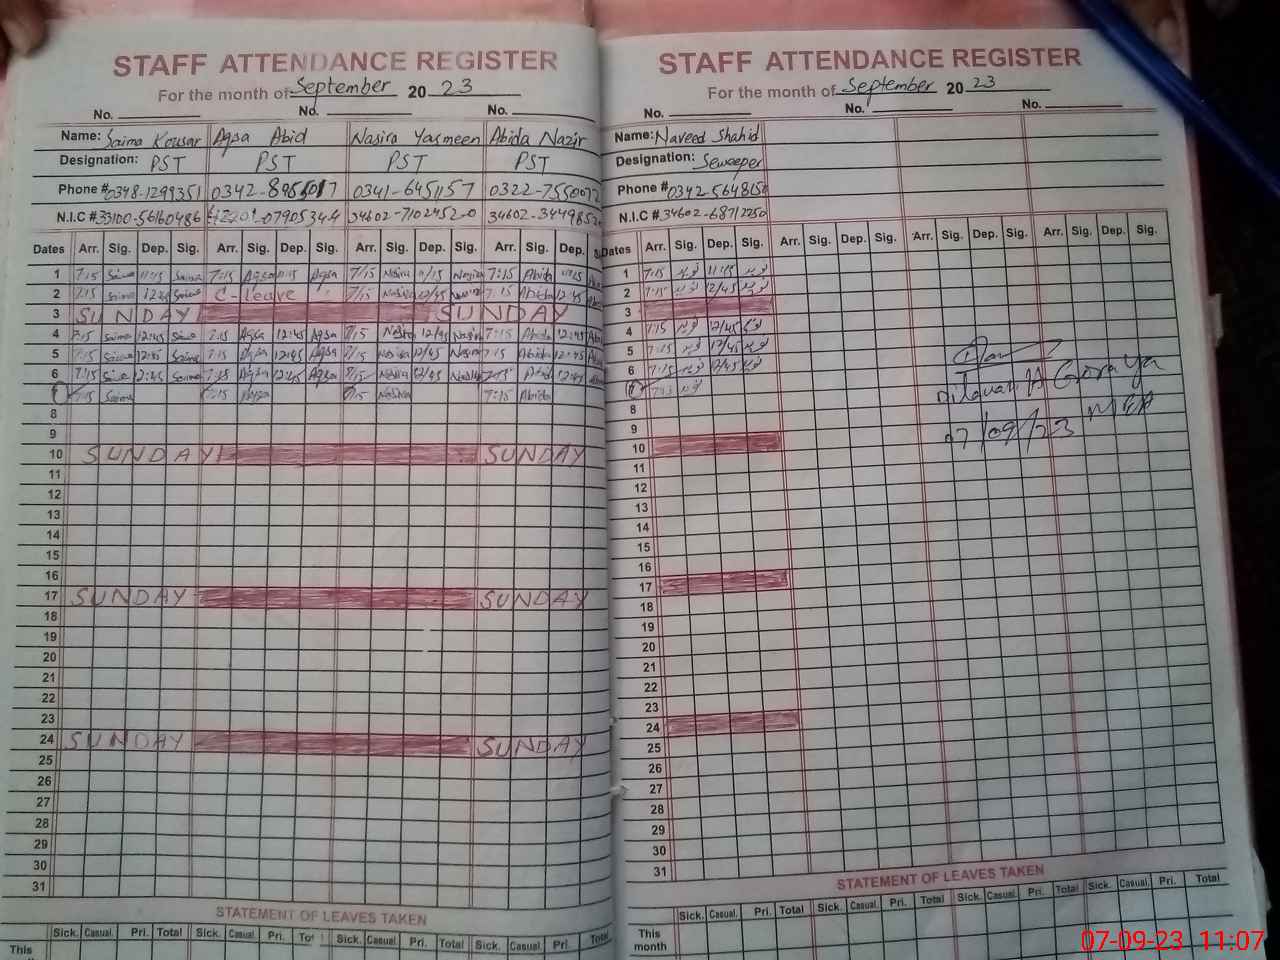 STAFF ATTENDANCE REGISTER
For the month of September 20 23
No. No. No.
Name: Saima Kousar Aqsa Abid Nasira Yasmeen Abida Nazir
Designation: PST PST PST PST
Phone # 0348-1299351 0342-8965017 0341-6451157 0322-7550072
N.I.C # 33100-56160486 07905344 34602-7102452-0 34602-3449852
Dates Arr. Sig. Dep. Sig. Arr. Sig. Dep. Sig. Arr. Sig. Dep. Sig. Arr. Sig. Dep.
1 7:15 Saima 11:45 Saima 7:15 Aqsa 11:45 Aqsa 7/15 Nasira 11/15 Nasira 7:15 Abida 11:45
2 7:15 Saima 12:45 Saima C-leave 7/15 Nasira 12/45 Nasira 7:15 Abida 12:45
3 SUNDAY SUNDAY
4 7:15 Saima 12:45 Saima 7:15 Aqsa 12:45 Aqsa 7/15 Nasira 12/45 Nasira 7:15 Abida 12:45
5 7:15 Saima 12:45 Saima 7:15 Aqsa 12:45 Aqsa 7/15 Nasira 12/45 Nasira 7:15 Abida 12:45
6 7:15 Saima 12:45 Saima 7:15 Aqsa 12:45 Aqsa 7/15 Nasira 12/45 Nasira 7:15 Abida 12:45
7:15 Saima 7:15 Aqsa 7/15 Nasira 7:15 Abida
8
9
10 SUNDAY SUNDAY
11
12
13
14
15
16
17 SUNDAY SUNDAY
18
19
20
21
22
23
24 SUNDAY SUNDAY
25
26
27
28
29
30
31
STATEMENT OF LEAVES TAKEN
Sick. Casual. Pri. Total Sick. Casual. Pri. Sick. Casual. Pri. Total Sick. Casual. Pri. Total
This
STAFF ATTENDANCE REGISTER
For the month of September 20 23
No. No. No.
Name: Naveed Shahid
Designation: Seweeper
Phone # 0342-5648150
N.I.C # 34602-68712250
Dates Arr. Sig. Dep. Sig. Arr. Sig. Dep. Sig. Arr. Sig. Dep. Sig. Arr. Sig. Dep. Sig.
1 7:15 نوید 11:45 نوید
2 7:15 نوید 12/45 نوید
3
4 7:15 نوید 12/45 نوید
5 7:15 نوید 12/45 نوید
6 7:15 نوید 12/45 نوید
نوید
8
9
10
11
12
13
14
15
16
17
18
19
20
21
22
23
24
25
26
27
28
29
30
31
Goraya
MEA
07/09/23
STATEMENT OF LEAVES TAKEN
Sick. Casual. Pri. Total Sick. Casual. Pri. Total Sick. Casual. Pri. Total Sick. Casual. Pri. Total
This
month
07-09-23 11:07